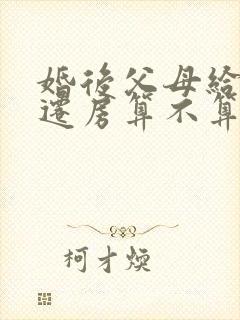 婚後父母給
遷房算不算
柯才煥